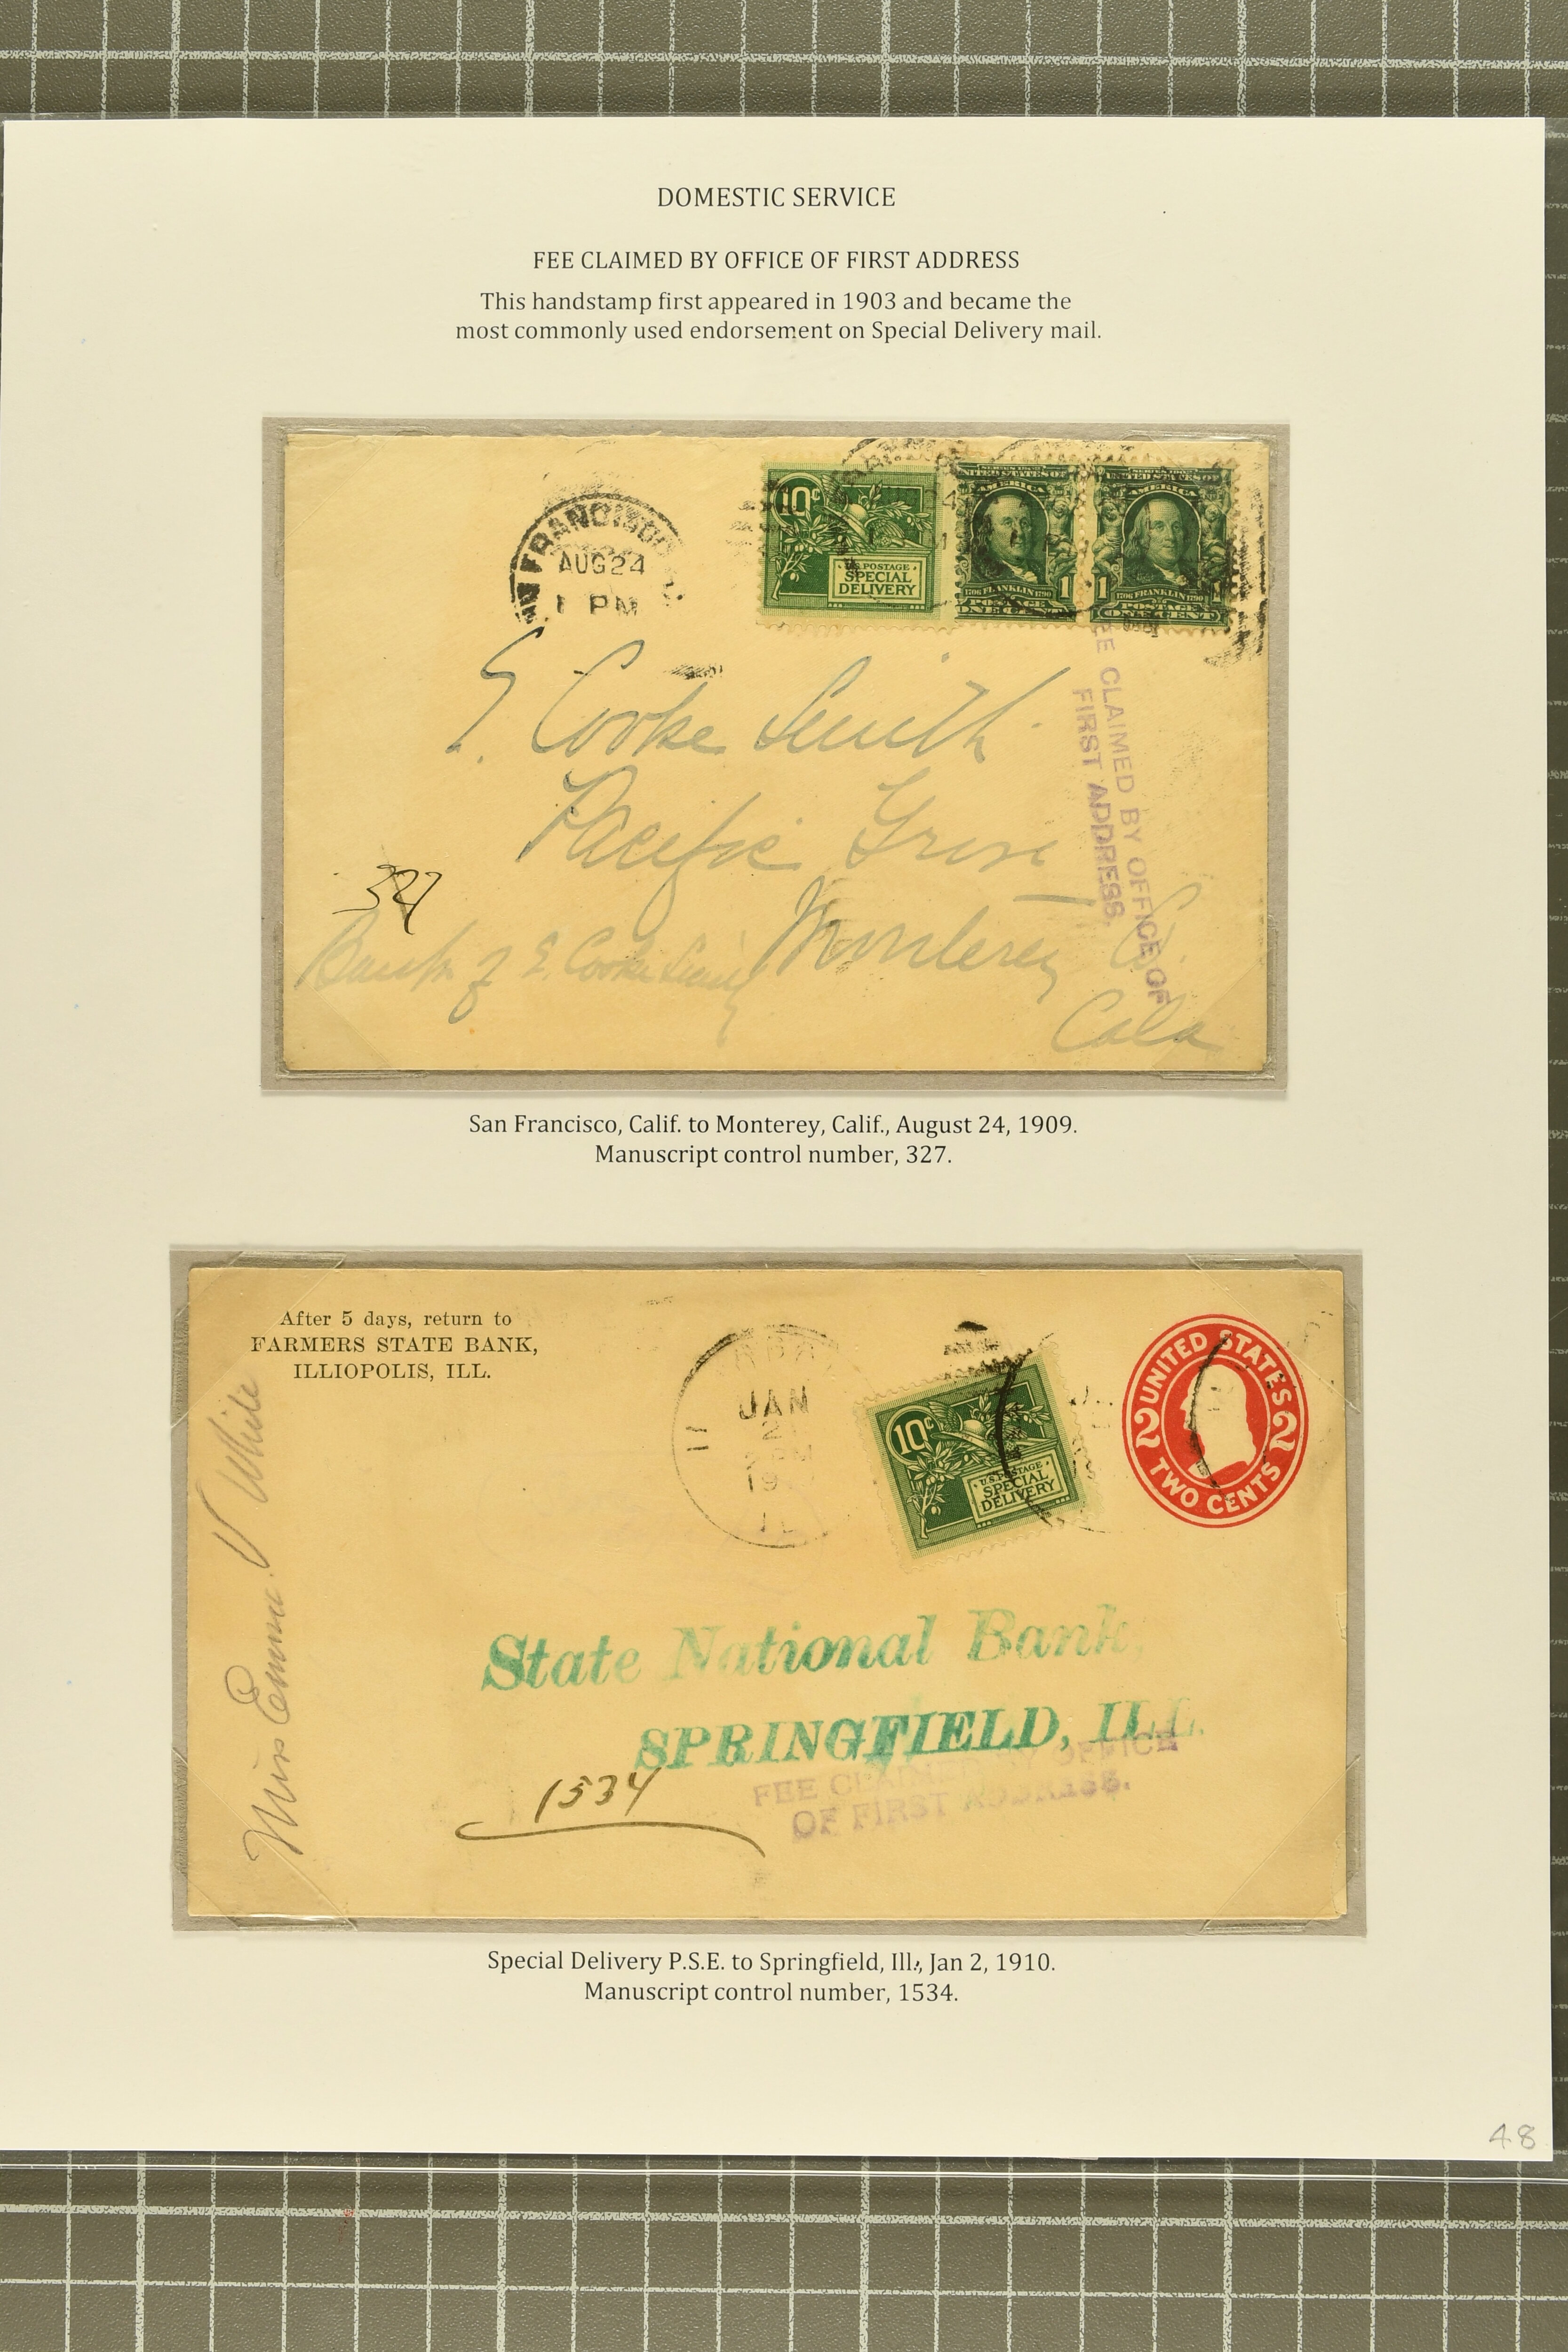 DOMESTIC SERVICE
FEE CLAIMED BY OFFICE OF FIRST ADDRESS
This handstamp first appeared in 1903 and became the
most commonly used endorsement on Special Delivery mail.
FRANCISCO
AUG 24
1 PM
10c
U.S. POSTAGE
SPECIAL
DELIVERY
UNITED STATES OF
AMERICA
1706 FRANKLIN 1790
1
POSTAGE
ONE CENT
UNITED STATES OF
AMERICA
1 1706 FRANKLIN 1790 1
POSTAGE
ONE CENT
FEE CLAIMED BY OFFICE OF
FIRST ADDRESS.
E. Cooke Smith
Pacific Grove
Monterey Co.
Cala
327
Bank of E. Cooke Smith
San Francisco, Calif. to Monterey, Calif., August 24, 1909.
Manuscript control number, 327.
After 5 days, return to
FARMERS STATE BANK,
ILLIOPOLIS, ILL.
Miss Emma V White
JAN
2
PM
19
10c
U.S. POSTAGE
SPECIAL
DELIVERY
UNITED STATES
2 2
TWO CENTS
State National Bank,
SPRINGFIELD, ILL.
FEE CLAIMED BY OFFICE
OF FIRST ADDRESS.
1534
Special Delivery P.S.E. to Springfield, Ill., Jan 2, 1910.
Manuscript control number, 1534.
48